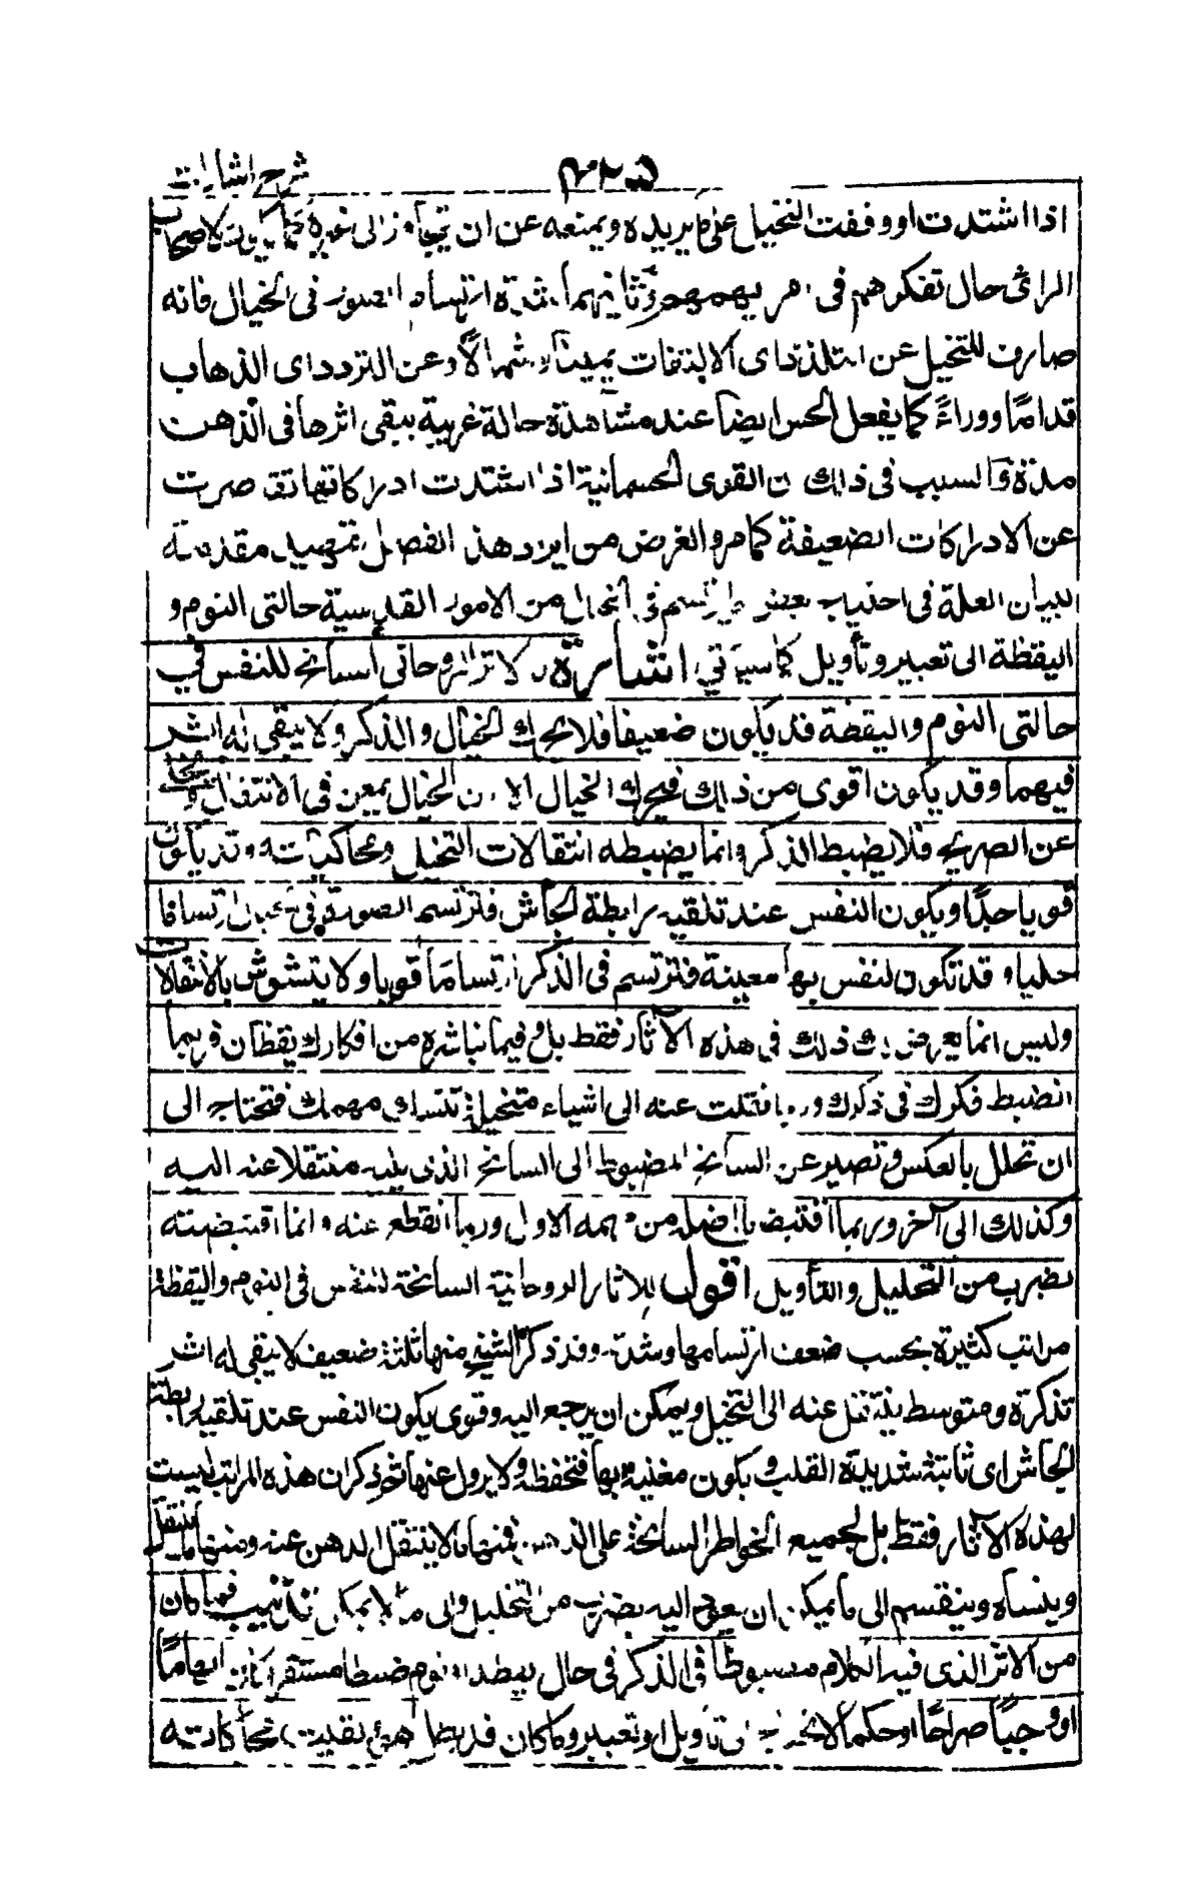 شرح اشارات
اذا اشتدت اوقفت التخيل على ما يريده ويمنعه عن ان يتجاوز الى غيره كما يكون لاصحاب
الرائ حال تفكرهم فى امر يهمهم وثانيهما شدة ارتسام الصور فى الخيال فانه
صارف للتخيل عن التلذذ اى الالتفات يمينا وشمالاً وعن التردد اى الذهاب
قداما ووراءً كما يفعل الحس ايضا عند مشاهدة حالة غريبة يبقى اثرها فى الذهن
مدة والسبب فى ذلك ان القوى الجسمانية اذا اشتدت ادراكاتها تقاصرت
عن الادراكات الضعيفة كما مر والغرض من ايراد هذا الفصل تمهيد مقدمة
لبيان العلة فى احتياج بعض ما يرتسم فى الخيال من الامور القدسية حالتى النوم و
اليقظة الى تعبير وتأويل كما سيأتي اشارة الاثر الروحانى السانح للنفس في
حالتى النوم واليقظة قد يكون ضعيفا فلا يحرك الخيال والذكر ولا يبقى له اثر
فيهما وقد يكون اقوى من ذلك فيحرك الخيال الا ان الخيال يمعن فى الانتقال
عن الصريح فلا يضبط الذكر وانما يضبطه انتقالات التخيل ومحاكياته وقد يكون
قويا جدًا ويكون النفس عند تلقيه رابطة الجأش فترتسم الصورة فى الخيال ارتساما
جليا وقد تكون لنفس بها معينة فترتسم فى الذكر ارتساما قويا ولا يتشوش بالانتقالات
وليس انما يعرض لك ذلك فى هذه الآثار فقط بل وفيما تباشره من افكارك يقظان فربما
انضبط فكرك فى ذكرك وربما انتقلت عنه الى اشياء متخيلة تنسيك مهمك فتحتاج الى
ان تحلل بالعكس وتصير عن السانح المضبوط الى السانح الذى يليه منتقلا عنه اليه
وكذلك الى آخر وربما اقتنض ما اضله من مهمه الاول وربما انقطع عنه وانما اقتنضته
بضرب من التحليل والتأويل اقول للاثار الروحانية السانحة للنفس فى النوم واليقظة
مراتب كثيرة بحسب ضعف ارتسامها وشدته وقد ذكر الشيخ منها ثلثة ضعيف لا يبقى له اثر
تذكرة ومتوسط ينتقل عنه الى التخيل ويمكن ان يرجع اليه وقوى يكون النفس عند تلقيه رابطة
الجأش اى ثابتة شديدة القلب ويكون معنية بها فتحفظه ولا يزول عنها ثم ذكر ان هذه المراتب ليست
لهذه الآثار فقط بل لجميع الخواطر السانحة على الذهن فمنها ما لا ينتقل الذهن عنه ومنها ما ينتقل
وينساه وينقسم الى ما يمكن ان يعود اليه بضرب من التحليل والى ما لا يمكن تذنيب فما كان
من الاثر الذى فيه الكلام مضبوطا فى الذكر فى حال يقظة او نوم ضبطا مستقرا كان الهاما
او وحيًا صراحًا او حكما لا يحتاج الى تأويل او تعبير وما كان قد بطل هو وبقيت محاكاته